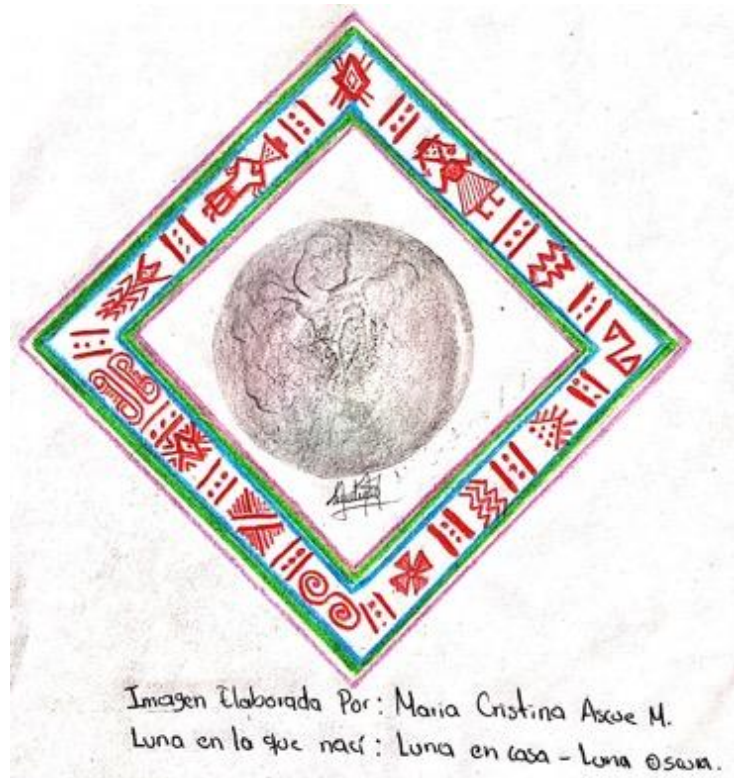 Imagen Elaborada Por: Maria Cristina Ascue M.
Luna en la que nací: Luna en casa - Luna Oscura.